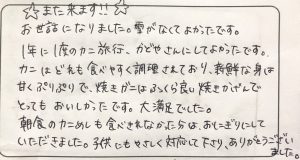 ☆また来ます!!☆
お世話になりました。雪がなくてよかったです。
1年に1度のカニ旅行、かどやさんにしてよかったです。
カニはどれも食べやすく調理されており、新鮮な身は
甘くぷりぷりで、焼きガニはふっくら良い焼きかげんで
とってもおいしかったです。大満足でした。
朝食のカニめしも食べきれなかった分は、おにぎりにして
いただきました。子供にもやさしく対応して下さり、ありがとうござい
ました。